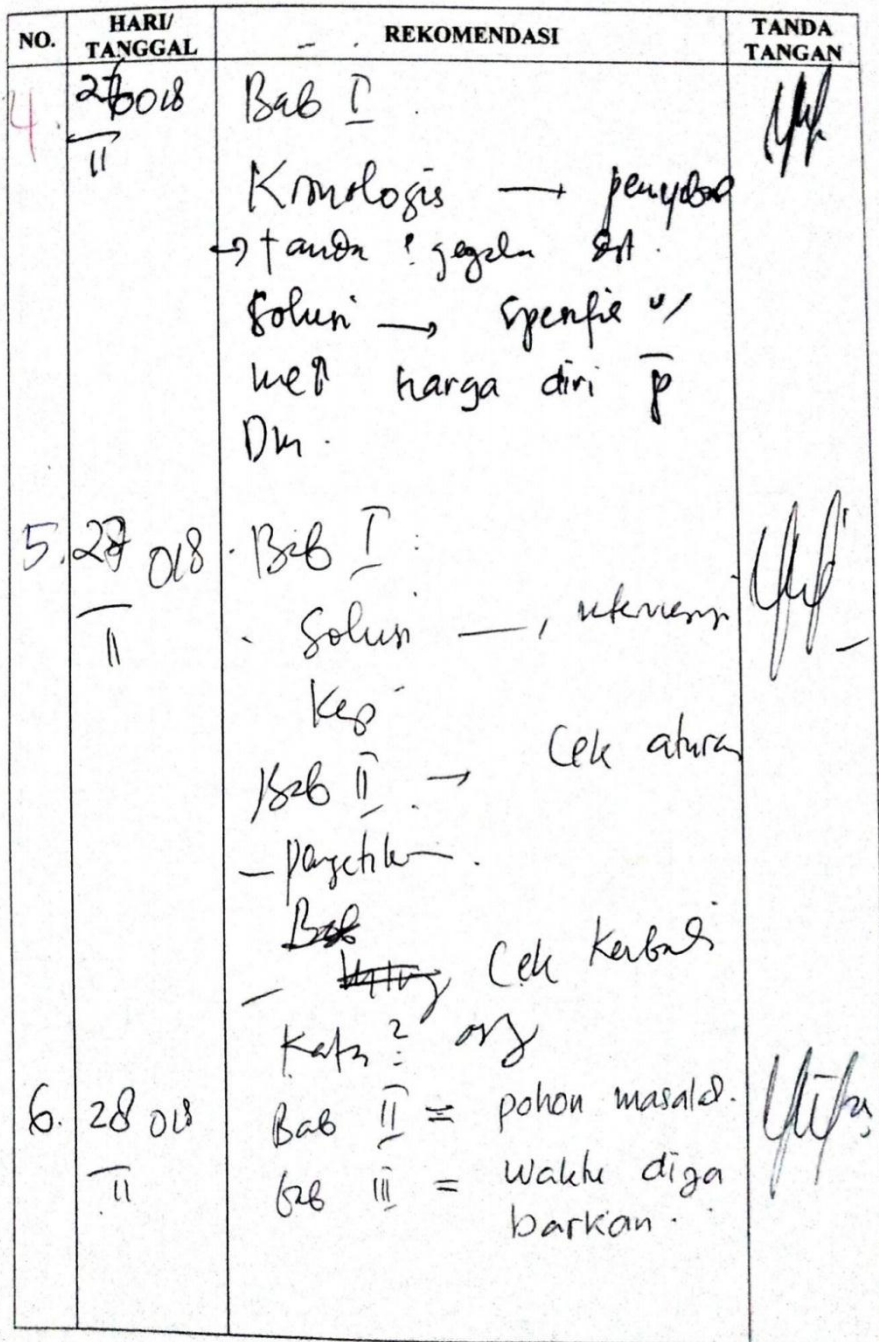 NO. HARI/ TANGGAL REKOMENDASI TANDA TANGAN
4. 018 Bab I
II
Kronologis → penyebab
→ tanda gejala
Solusi → spesifik u/
me↑ harga diri p
Dm.
5. 27 018 Bab I:
II
- Solusi → intervensi
Kep
Bab II → Cek aturan
- pengetikan.
Bab
- Cek Kembali
Kata²
6. 28 018 Bab II = pohon masalah.
II Bab III = waktu diga
barkan.